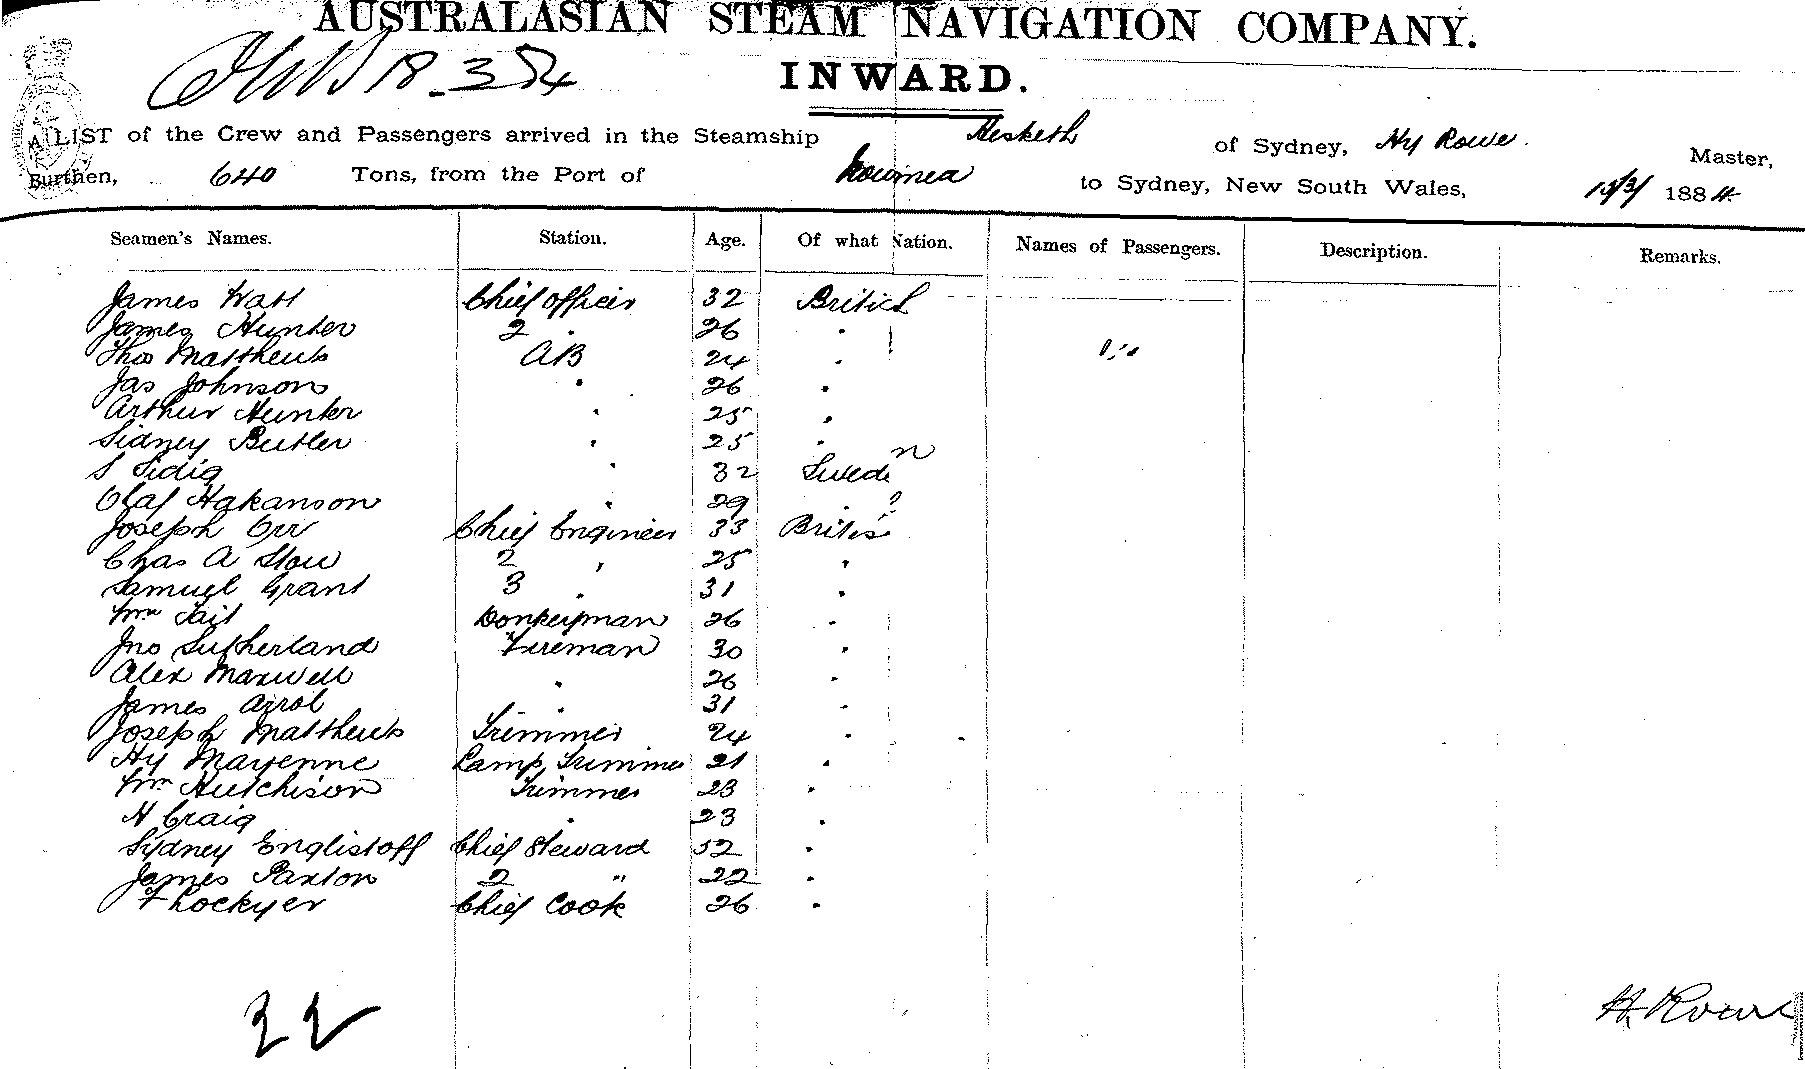 AUSTRALASIAN STEAM NAVIGATION COMPANY.
18.3.84
INWARD.
A LIST of the Crew and Passengers arrived in the Steamship Hesketh of Sydney, Hy Rowe. Master,
Burthen, 640 Tons, from the Port of Noumea to Sydney, New South Wales, 1884.
Seamen's Names. Station. Age. Of what Nation. Names of Passengers. Description. Remarks.
James Watt Chief officer 32 British
James Hunter 2 " 26 "
Thos Matthews AB 24 "
Jas Johnson " 26 "
Arthur Hunter " 25 "
Sidney Butler " 25 "
S Sidig " 32 Sweden
Olaf Hakanson " 29 "
Joseph Orr Chief Engineer 33 British
Chas A Stow 2 " 25 "
Samuel Grant 3 " 31 "
Wm Tait Donkeyman 26 "
Jno Sutherland Fireman 30 "
Alex Maxwell " 26 "
James Arrol " 31 "
Joseph Matthews Trimmer 24 "
Hy Mayenne Lamp Trimmer 21 "
Wm Hutchison Trimmer 23 "
H Craig " 23 "
Sydney Englistoff Chief Steward 52 "
James Paxton 2 " 22 "
F Lockyer Chief Cook 26 "
22
H Rowe